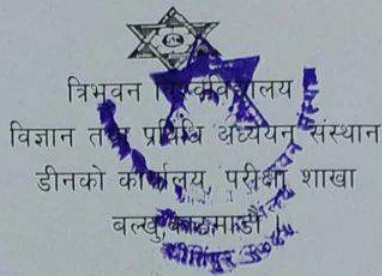 त्रिभुवन विश्वविद्यालय
विज्ञान तथा प्रविधि अध्ययन संस्थान
डीनको कार्यालय, परीक्षा शाखा
बल्खु, काठमाडौं ।